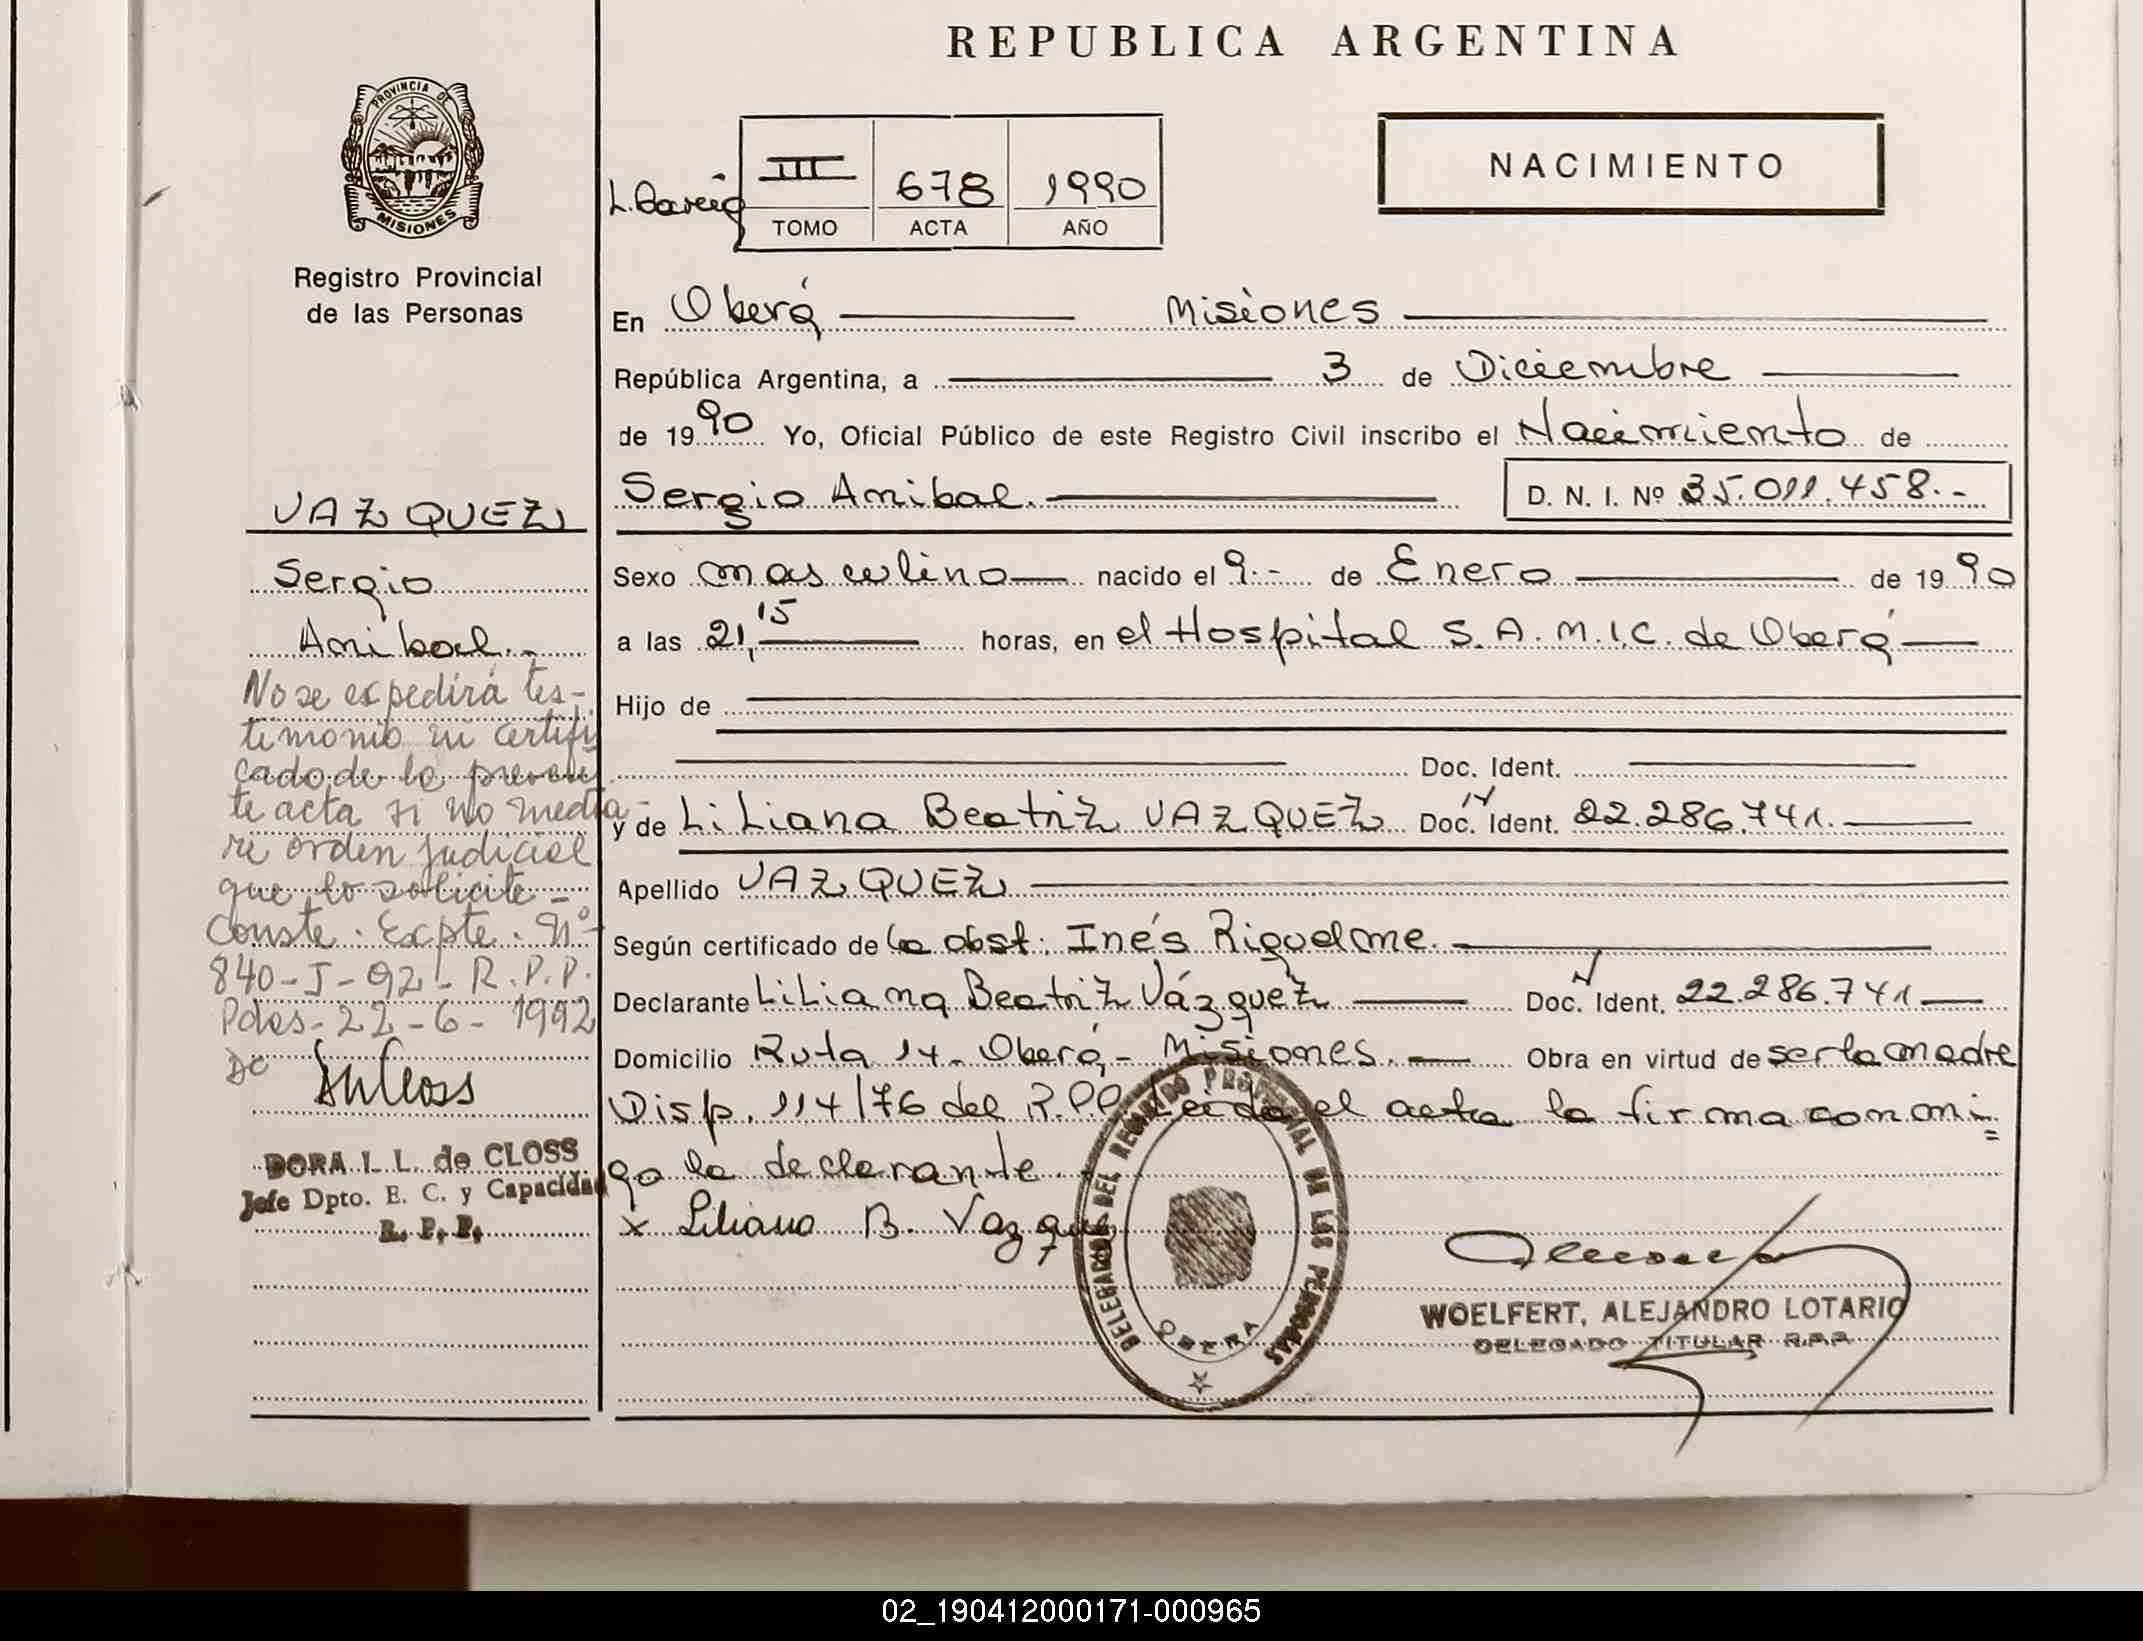 REPUBLICA ARGENTINA
PROVINCIA DE
MISIONES
Registro Provincial
de las Personas
III 678 1990
TOMO ACTA AÑO
NACIMIENTO
VAZQUEZ
Sergio
Anibal.-
No se expedirá tes-
timonio ni certifi
cado de la presen
te acta si no media-
re orden judicial
que lo solicite -
Conste. Expte. Nº
840-J-92- R.P.P.
Pdas- 22-6-1992
DORA I. L. de CLOSS
Jefe Dpto. E. C. y Capacidad
R. P. P.
En Oberá Misiones
República Argentina, a 3 de Diciembre
de 1990 Yo, Oficial Público de este Registro Civil inscribo el Nacimiento de
Sergio Anibal. D. N. I. Nº 35.011.458.-
Sexo masculino nacido el 9.- de Enero de 1990
a las 21,15 horas, en el Hospital S.A.M.I.C. de Oberá
Hijo de
Doc. Ident.
y de LiLiana Beatriz VAZQUEZ Doc. Ident. 22.286.741.
Apellido VAZQUEZ
Según certificado de la obst. Inés Riquelme.
Declarante LiLiana Beatriz Vázquez Doc. Ident. 22.286.741
Domicilio Ruta 14- Oberá,- Misiones. Obra en virtud de ser la madre
Disp. 114/76 del R.P.P. Leida el acta la firma conmi=
go la declarante.
x Liliana B. Vazquez
DELEGACION DEL REGISTRO PROVINCIAL DE LAS PERSONAS
OBERA
WOELFERT, ALEJANDRO LOTARIO
DELEGADO TITULAR R.P.P.
02_190412000171-000965